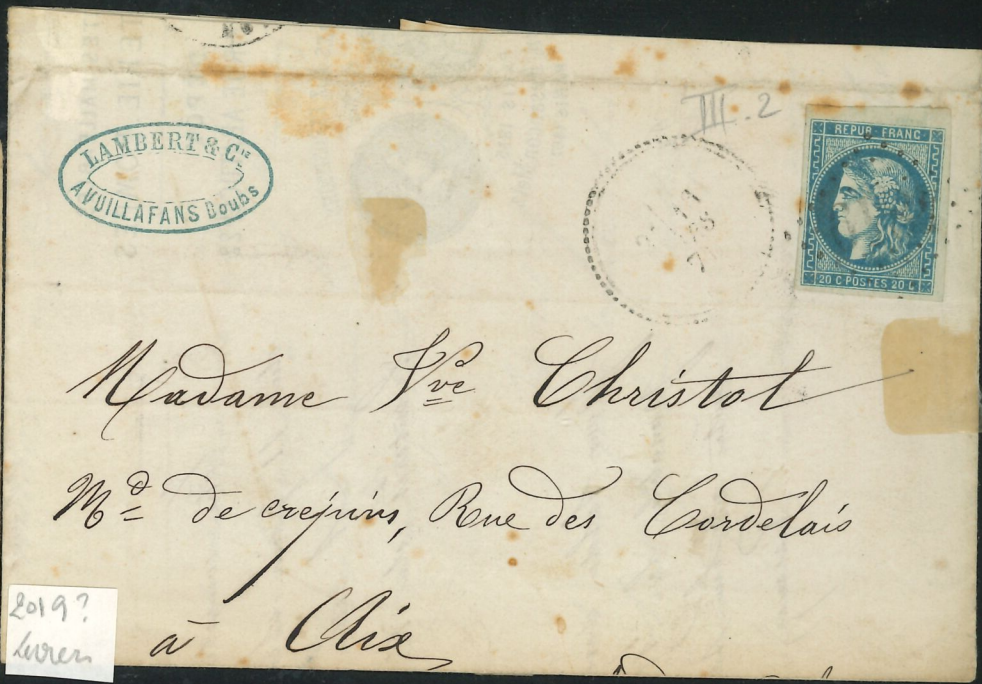 III. 2
LAMBERT & Cie
A VUILLAFANS Doubs
REPUB. FRANC.
20 C POSTES 20 C
Madame Vve Christol
Md de crépins, Rue des Cordelais
à Aix
2019?